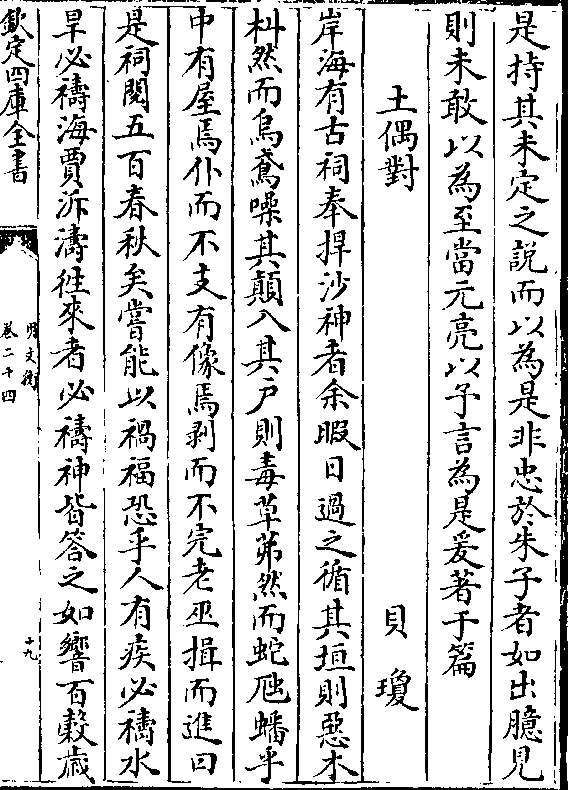 是持其未定之說而以為是非忠於朱子者如出臆見
則未敢以為至當元亮以予言為是爰著于篇
土偶對 貝瓊
岸海有古祠奉捍沙神者余暇日過之循其垣則惡木
朻然而烏鳶噪其顛入其戶則毒草茀然而蛇虺蟠乎
中有屋焉仆而不支有像焉剥而不完老巫揖而進曰
是祠閱五百春秋矣嘗能以禍福恐乎人有疾必禱水
旱必禱海賈泝濤徃來者必禱神皆答之如響百穀歳
欽定四庫全書
明文衡
卷二十四
十九